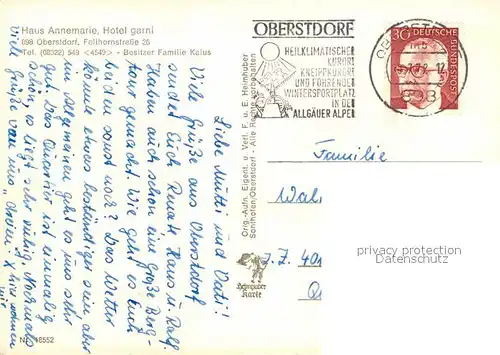 Haus Annemarie, Hotel garni
898 Oberstdorf, Fellhornstraße 26
Tel. (08322) 549 <4549> - Besitzer Familie Kaius
Liebe Mutti und Vati!
Viele Grüße aus Oberstdorf
sendet Euch Renate, Hans u. Ralf.
Haben auch schon eine große Berg-
tour gemacht. Wie geht es Euch
beiden sonst noch? Das Wetter
könnte etwas beständiger sein aber
im allgemeinen geht es uns sehr
gut. Das Quartier ist einmalig
schön, es liegt sehr ruhig. Nochmals
Viele Grüße von uns "Dreien" X hier wohnen
wir
Nr. 48552
Orig.-Aufn. Eigent. u. Verl. F. u. E. Heimhuber
Sonthofen/Oberstdorf - Alle Rechte vorbehalten
Heimhuber
Karte
OBERSTDORF
HEILKLIMATISCHER
KURORT
KNEIPPKURORT
UND FÜHRENDER
WINTERSPORTPLATZ
IN DEN
ALLGÄUER ALPEN
30
DEUTSCHE
BUNDESPOST
Familie
Wal
privacy protection